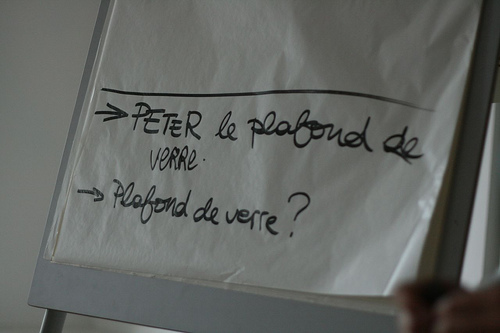 → PETER le plafond de
verre.
→ Plafond de verre ?